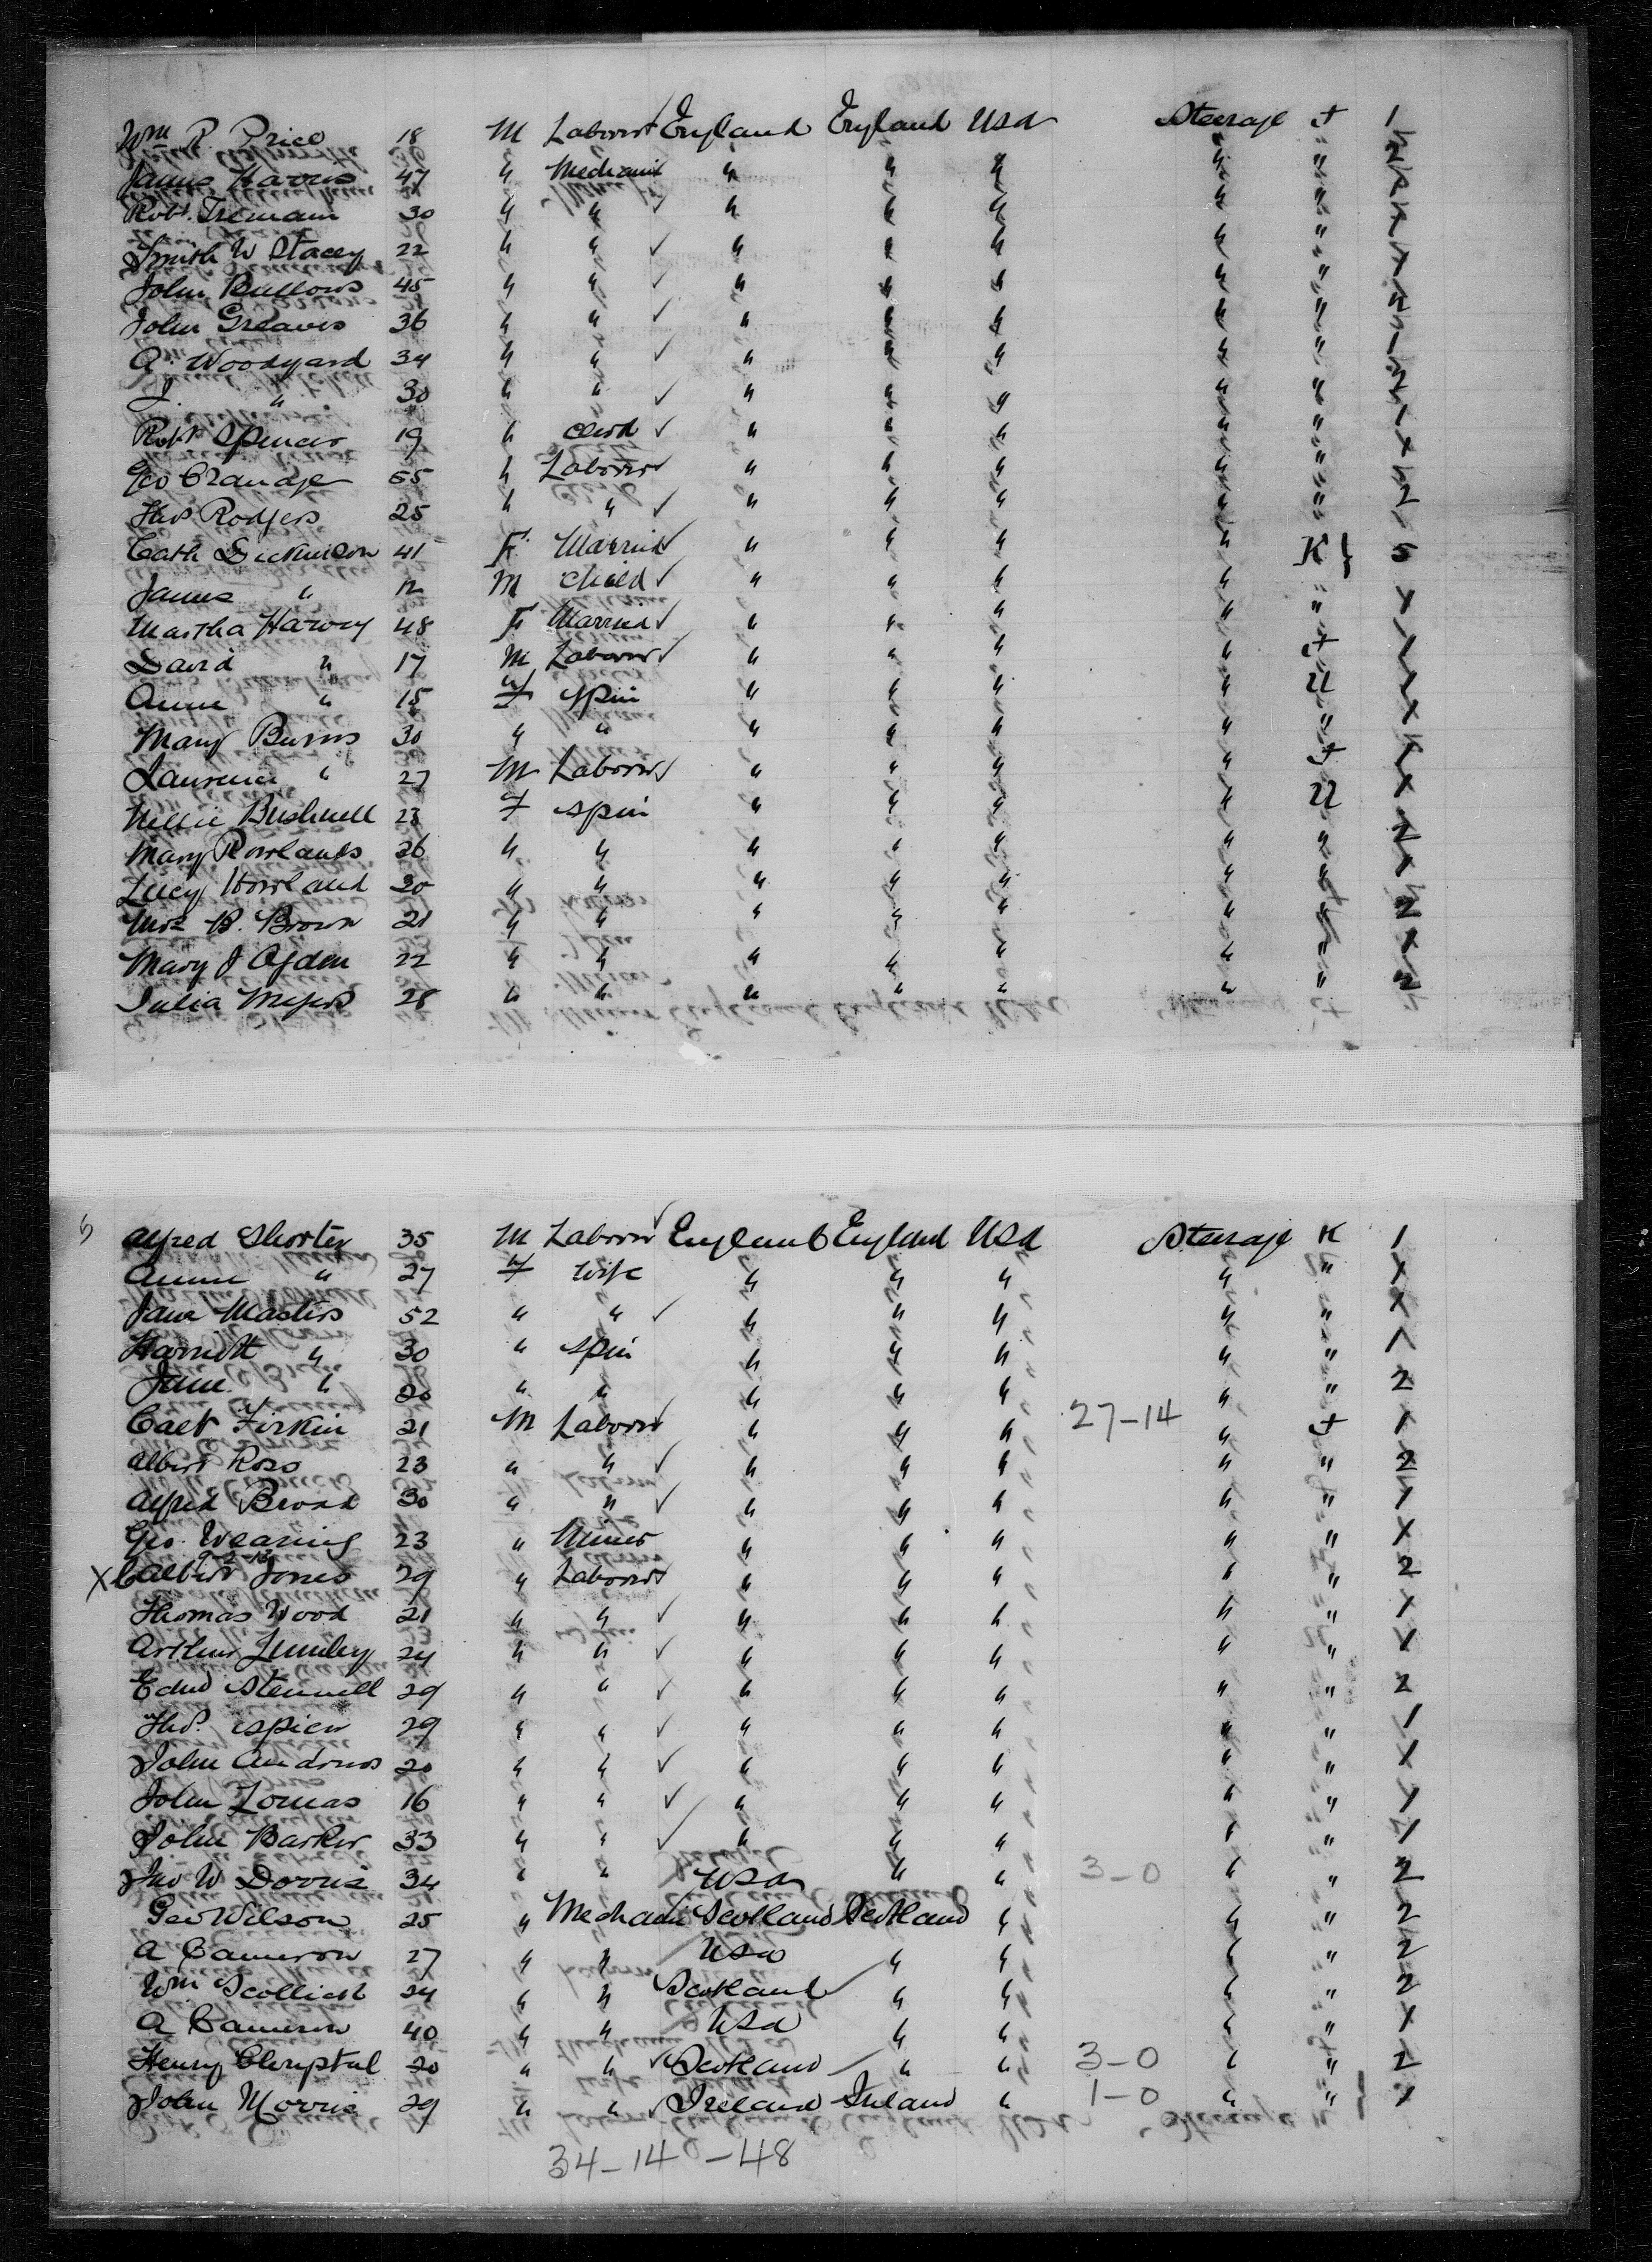 Wm R. Price 18 M Laborer ✓ England England USA Steerage J 1
James Harris 47 " Mechanic " " " " "
Robt. Tremain 30 " " ✓ " " " " "
Smith W Stacey 22 " " ✓ " " " " " X
John Bullows 45 " " ✓ " " " " "
John Greaves 36 " " ✓ " " " " "
A. Woodyard 34 " " ✓ " " " " "
J. " 30 " " ✓ " " " " "
Robt Spencer 19 " Clerk ✓ " " " " " X
Geo Orange 55 " Laborer ✓ " " " " "
Thos Rodgers 25 " " ✓ " " " " "
Cath Dickinson 41 F Married ✓ " " " " K } 5
James " 12 M Child ✓ " " " " " X
Martha Harvey 48 F Married ✓ " " " " "
David " 17 M Laborer ✓ " " " " J
Anne " 15 F Spin " " " " U X
Mary Burns 30 " " " " " " "
Lawrence " 27 M Laborer ✓ " " " " J X
Nellie Bushnell 23 F Spin " " " " U
Mary Rowlands 26 " " " " " " " X
Lucy Howland 30 " " " " " " "
Mrs B. Brown 21 " " " " " " "
Mary J Ogden 22 " " " " " " "
Julia Meyers 28 " " " " " " " 2
Alfred Shorter 35 M Laborer ✓ England England USA Steerage K 1
Anne " 27 F Wife " " " " " X
Jane Masters 52 " " ✓ " " " " " X
Harriett " 30 " Spin " " " " " 1
Jane " 20 " " " " " " " 2
Calet Firkin 21 M Laborer ✓ " " " 27-14 " J 1
Albert Ross 23 " " ✓ " " " " " 2
Alfred Broad 30 " " ✓ " " " " " 1
Geo. Wearing 23 " Miner " " " " " X
X Calbir Jones 29 " Laborer ✓ " " " " " 2
Thomas Wood 21 " " ✓ " " " " " X
Arthur Lumley 24 " " ✓ " " " " " X
Edwd Stennell 29 " " ✓ " " " " " 2
Thos. Spicer 29 " " ✓ " " " " " 1
John Andrews 20 " " ✓ " " " " " X
John Lomas 16 " " ✓ " " " " " X
John Barker 33 " " ✓ " " " " " 1
Jno W Dorris 34 " " USA " " 3-0 " " 2
Geo Wilson 25 " Mechanic Scotland Scotland " " " 2
A Cameron 27 " " USA " " " " 2
Wm Scollick 24 " " Scotland " " " " 2
A Cameron 40 " " USA " " " " X
Henry Chrystal 20 " " ✓ Scotland " " 3-0 " " 2
John Morris 29 " " ✓ Ireland Ireland " 1-0 " " X
34-14-48